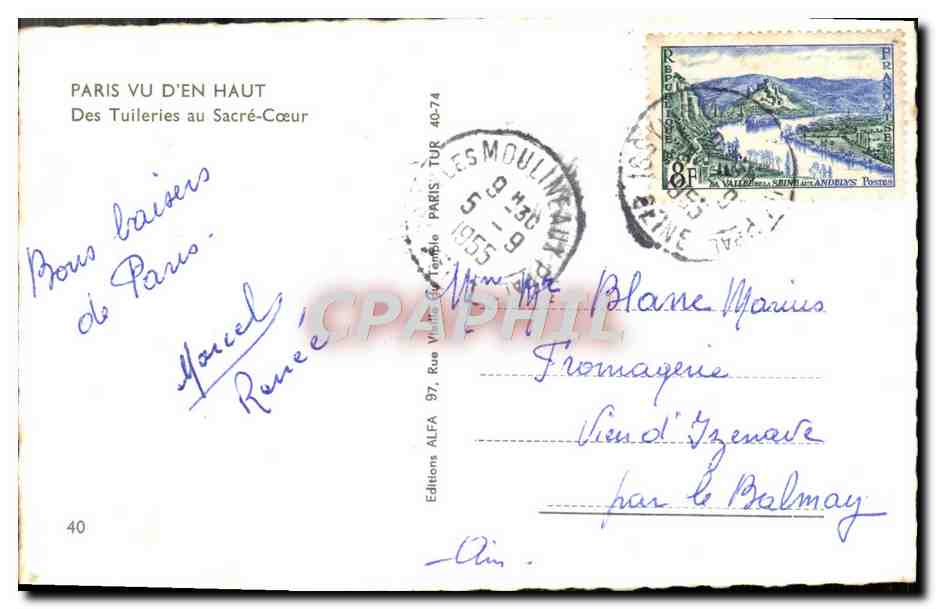 PARIS VU D'EN HAUT
Des Tuileries au Sacré-Cœur
Bons baisers
de Paris.
Marcel
Renée
40
Editions ALFA 97, Rue Vieille du Temple PARIS TUR 40-74
LES MOULINEAUX
9 H 30
5 - 9
1955
ISSY
SEINE
REPUBLIQUE FRANCAISE
8F
LA VALLEE DE LA SEINE AUX ANDELYS POSTES
CPAPHIL
Mme Mr Blanc Marius
Fromagerie
Vieu d'Izenave
par le Balmay
-Ain-